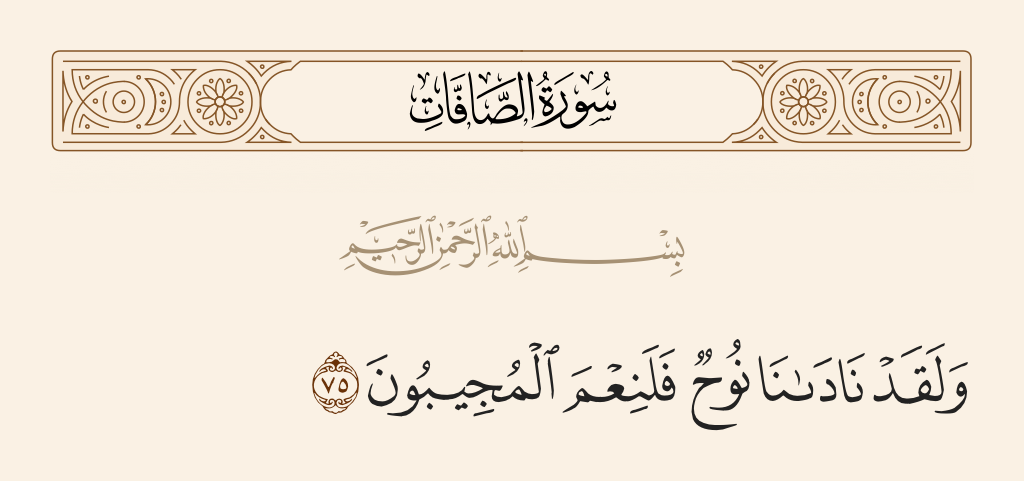 سُورَةُ الصَّافَّاتِ
بِسْمِ ٱللَّهِ ٱلرَّحْمَٰنِ ٱلرَّحِيمِ
وَلَقَدْ نَادَىٰنَا نُوحٌ فَلَنِعْمَ ٱلْمُجِيبُونَ ٧٥